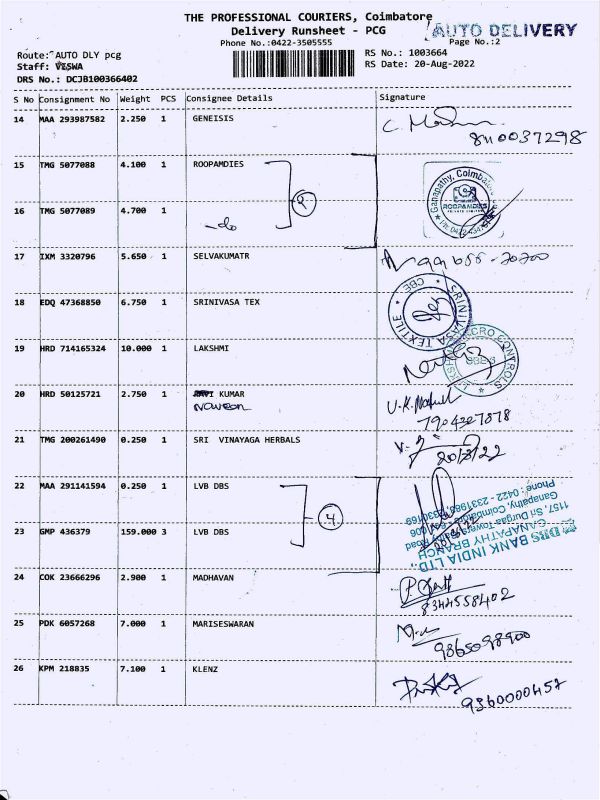 THE PROFESSIONAL COURIERS, Coimbatore
Delivery Runsheet - PCG
AUTO DELIVERY
Phone No.:0422-3505555
Page No.:2
Route: AUTO DLY pcg
RS No.: 1003664
Staff: VISWA
RS Date: 20-Aug-2022
DRS No.: DCJB100366402
S No Consignment No Weight PCS Consignee Details Signature
14 MAA 293987582 2.250 1 GENEISIS
8110037298
15 TMG 5077088 4.100 1 ROOPAMDIES
Ganapathy, Coimbatore
ROOPAMDIES
PRIVATE LIMITED
2
16 TMG 5077089 4.700 1
-do
17 IXM 3320796 5.650 1 SELVAKUMATR
18 EDQ 47368850 6.750 1 SRINIVASA TEX
SRINIVASA TEXTILE
CBE
19 HRD 714165324 10.000 1 LAKSHMI
MICRO CONTROLS
20 HRD 50125721 2.750 1 RAVI KUMAR
Naveen
7904327878
21 TMG 200261490 0.250 1 SRI VINAYAGA HERBALS
20/8/22
22 MAA 291141594 0.250 1 LVB DBS
4
23 GMP 436379 159.000 3 LVB DBS
DBS BANK INDIA LTD.,
GANAPATHY BRANCH
1157, Sri Durgaa Towers, Sathy Road
Ganapathy, Coimbatore - 641006
Phone : 0422 - 2331985, 2330168
24 COK 23666296 2.900 1 MADHAVAN
8344558402
25 PDK 6057268 7.000 1 MARISESWARAN
9865098900
26 KPM 218835 7.100 1 KLENZ
9360000457